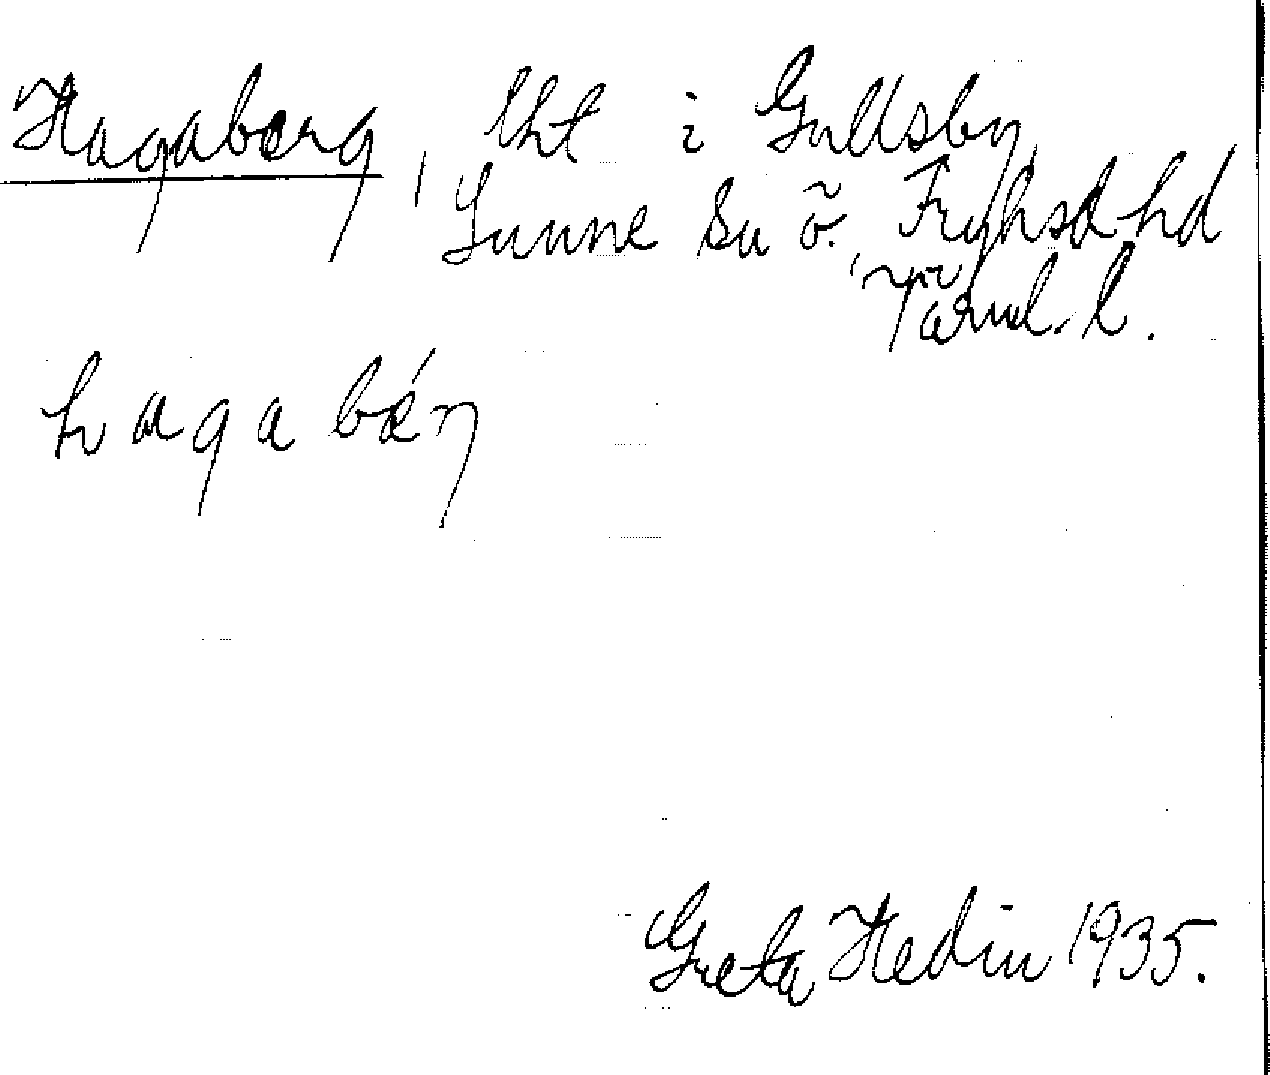 Hagaberg, lht i Gullsby,
Sunne sn ö. Fryksd hd
Värml. l.
hagabǽŋ
Greta Hedin 1935.